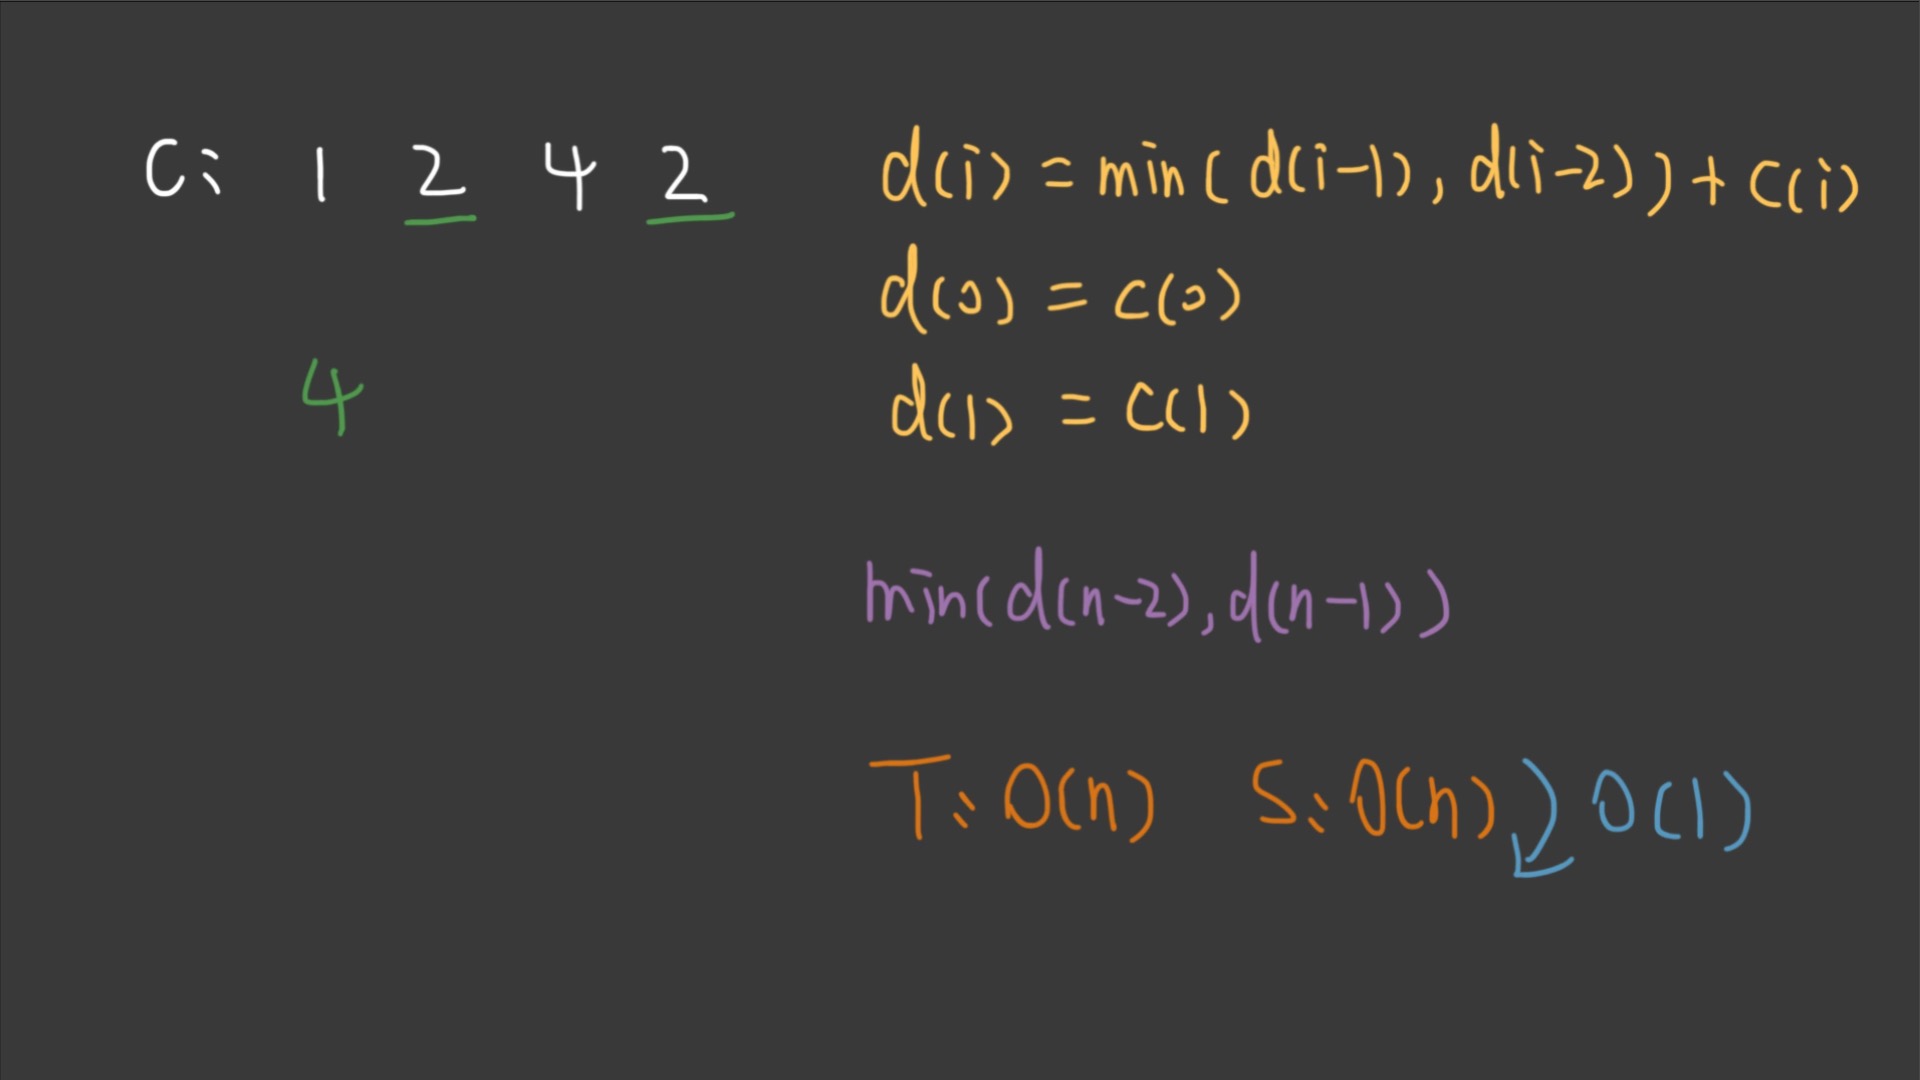 C: 1 2 4 2
4
d(i) = min(d(i-1), d(i-2)) + c(i)
d(0) = c(0)
d(1) = c(1)
min(d(n-2), d(n-1))
T: O(n) S: O(n) O(1)